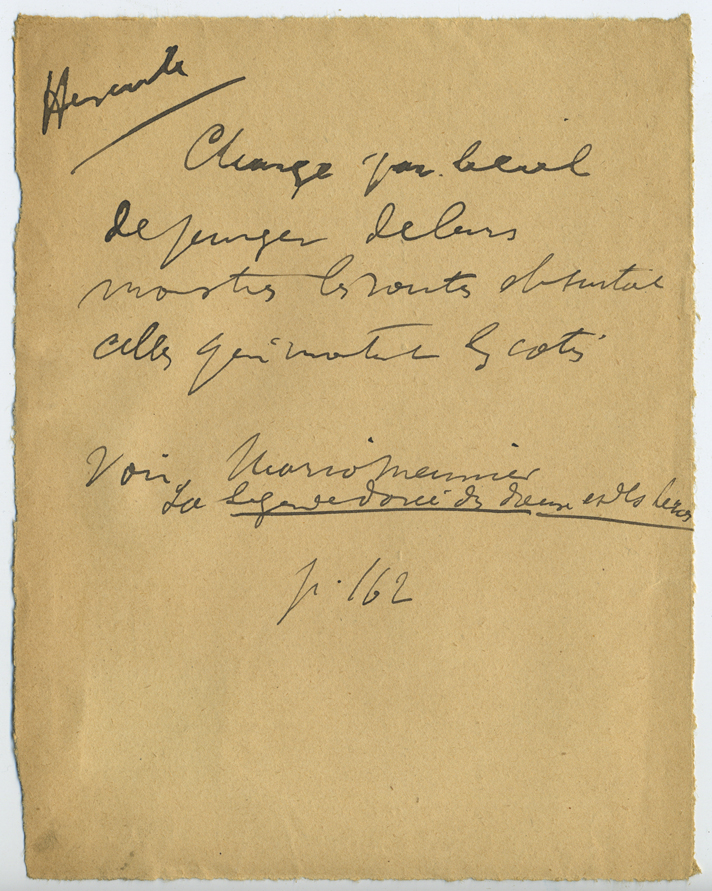 Hercule
Charge par le ciel
de purger de leurs
monstres les routes et surtout
celles qui montent les cotes
Voir Mario Meunier
La légende dorée des dieux et des heros
p. 162